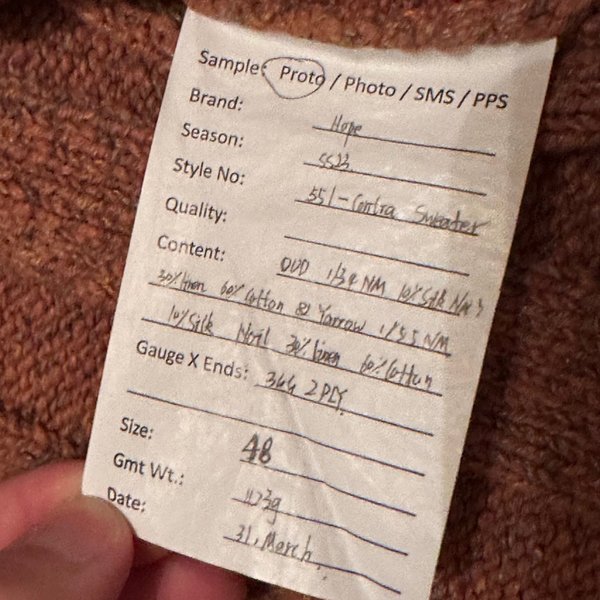 Sample: Proto / Photo / SMS / PPS
Brand: Hope
Season: SS23
Style No: 551-Contra Sweater
Quality:
Content: 1/34 NM 10% Silk
30% linen 60% Cotton & Yarrow 1/5.5 NM
10% Silk Noil 30% linen 60% Cotton
Gauge X Ends: 2PLY
Size: 48
Gmt Wt.:
Date: 31. March